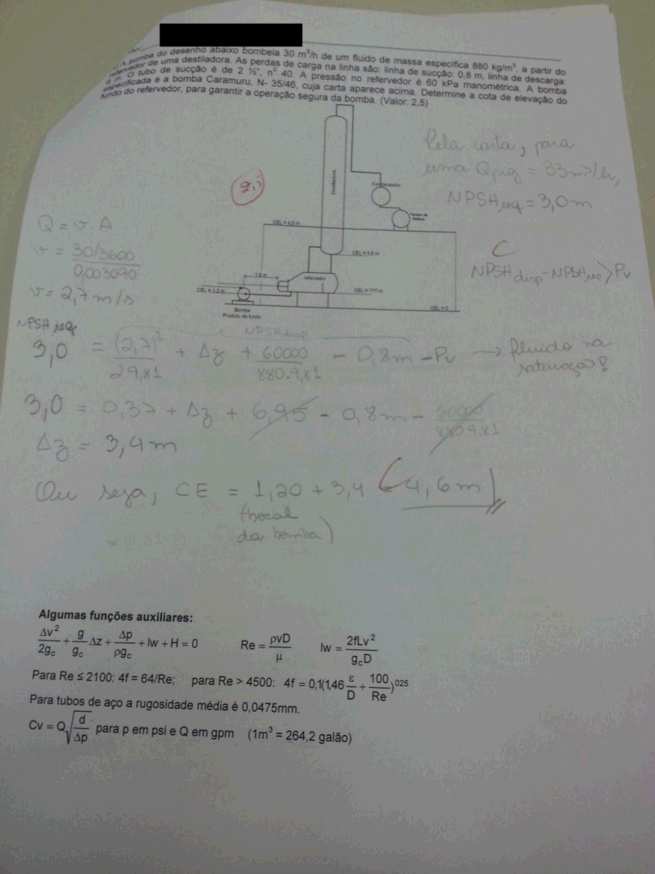 A bomba do desenho abaixo bombeia 30 m³/h de um fluido de massa específica 880 kg/m³, a partir do
refervedor de uma destiladora. As perdas de carga na linha são: linha de sucção: 0,8 m, linha de descarga:
m. O tubo de sucção é de 2 ½", nº 40. A pressão no refervedor é 60 kPa manométrica. A bomba
especificada é a bomba Caramuru, N- 35/46, cuja carta aparece acima. Determine a cota de elevação do
fundo do refervedor, para garantir a operação segura da bomba. (Valor: 2,5)
Pela carta, para
uma Q = 33m³/h,
NPSHreq = 3,0m
Destiladora
Condensador
1,8 m
Refervedor
CEL = 1,2 m
CEL = ??? m
Bomba
Produto de fundo
Q = v.A
v = 30/3600
0,003090
v = 2,7 m/s
C
NPSHdisp - NPSHreq > Pv
NPSHreq
NPSHdisp
3,0 = (2,7)²/29,81 + Δz + 60000/880.9,81 - 0,8m - Pv → fluido na
saturação
3,0 = 0,37 + Δz + 6,95 - 0,8m - 60000/880.9,81
Δz = 3,4m
Ou seja, CE = 1,20 + 3,4 = 4,6m
(bocal
da bomba)
Algumas funções auxiliares:
Δv²/2gc + g/gc Δz + Δp/ρgc + lw + H = 0 Re = ρvD/μ lw = 2fLv²/gcD
Para Re ≤ 2100: 4f = 64/Re; para Re > 4500: 4f = 0,1(1,46 ε/D + 100/Re)^0,25
Para tubos de aço a rugosidade média é 0,0475mm.
Cv = Q√(d/Δp) para p em psi e Q em gpm (1m³ = 264,2 galão)